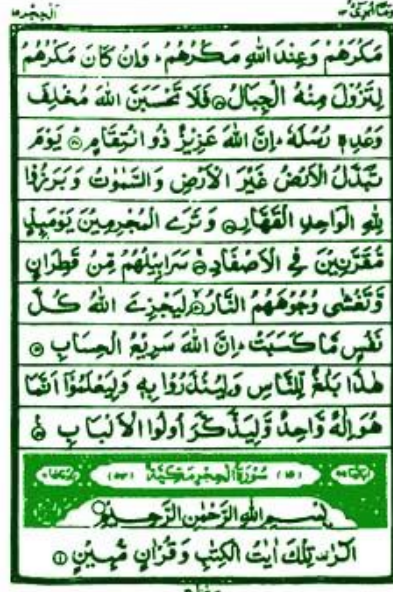 الحجر ١٥
وما ابرئ ١٣
مَكْرَهُمْ وَعِنْدَ اللهِ مَكْرُهُمْ ؕ وَاِنْ كَانَ مَكْرُهُمْ
لِتَزُوْلَ مِنْهُ الْجِبَالُ ۝ فَلَا تَحْسَبَنَّ اللهَ مُخْلِفَ
وَعْدِهٖ رُسُلَهٗ ؕ اِنَّ اللهَ عَزِيْزٌ ذُو انْتِقَامٍ ۝ يَوْمَ
تُبَدَّلُ الْاَرْضُ غَيْرَ الْاَرْضِ وَالسَّمٰوٰتُ وَبَرَزُوْا
لِلّٰهِ الْوَاحِدِ الْقَهَّارِ ۝ وَتَرَى الْمُجْرِمِيْنَ يَوْمَىِٕذٍ
مُّقَرَّنِيْنَ فِى الْاَصْفَادِ ۝ سَرَابِيْلُهُمْ مِّنْ قَطِرَانٍ
وَّتَغْشٰى وُجُوْهَهُمُ النَّارُ ۝ لِيَجْزِىَ اللهُ كُلَّ
نَفْسٍ مَّا كَسَبَتْ ؕ اِنَّ اللهَ سَرِيْعُ الْحِسَابِ ۝
هٰذَا بَلٰغٌ لِّلنَّاسِ وَلِيُنْذَرُوْا بِهٖ وَلِيَعْلَمُوْۤا اَنَّمَا
هُوَ اِلٰهٌ وَّاحِدٌ وَّلِيَذَّكَّرَ اُولُوا الْاَلْبَابِ ۝
(١٥) سُوْرَةُ الْحِجْرِ مَكِّيَّةٌ (٥٤)
بِسْمِ اللهِ الرَّحْمٰنِ الرَّحِيْمِ
الٓرٰ ۫ تِلْكَ اٰيٰتُ الْكِتٰبِ وَقُرْاٰنٍ مُّبِيْنٍ ۝